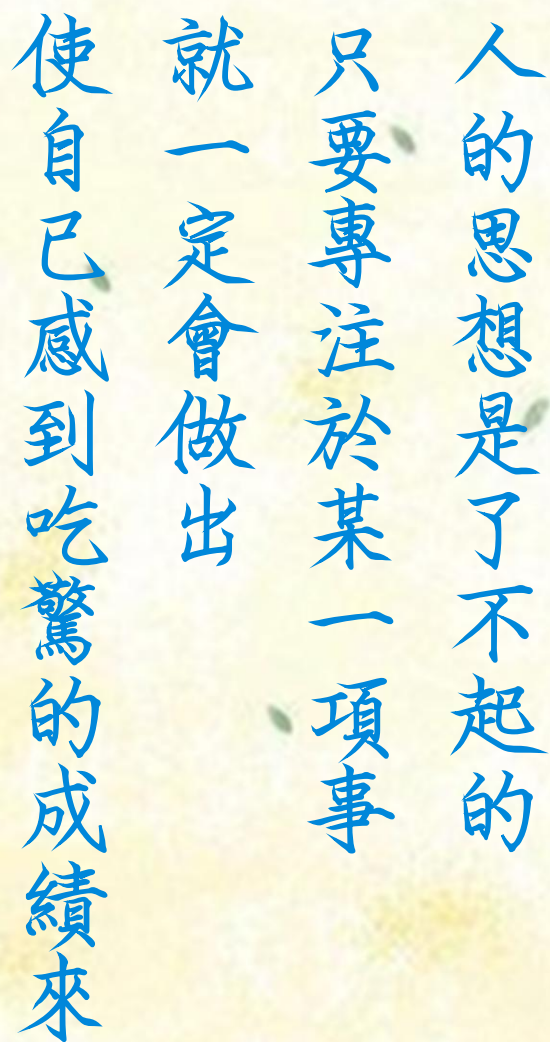 人的思想是了不起的
只要專注於某一項事
就一定會做出
使自己感到吃驚的成績來